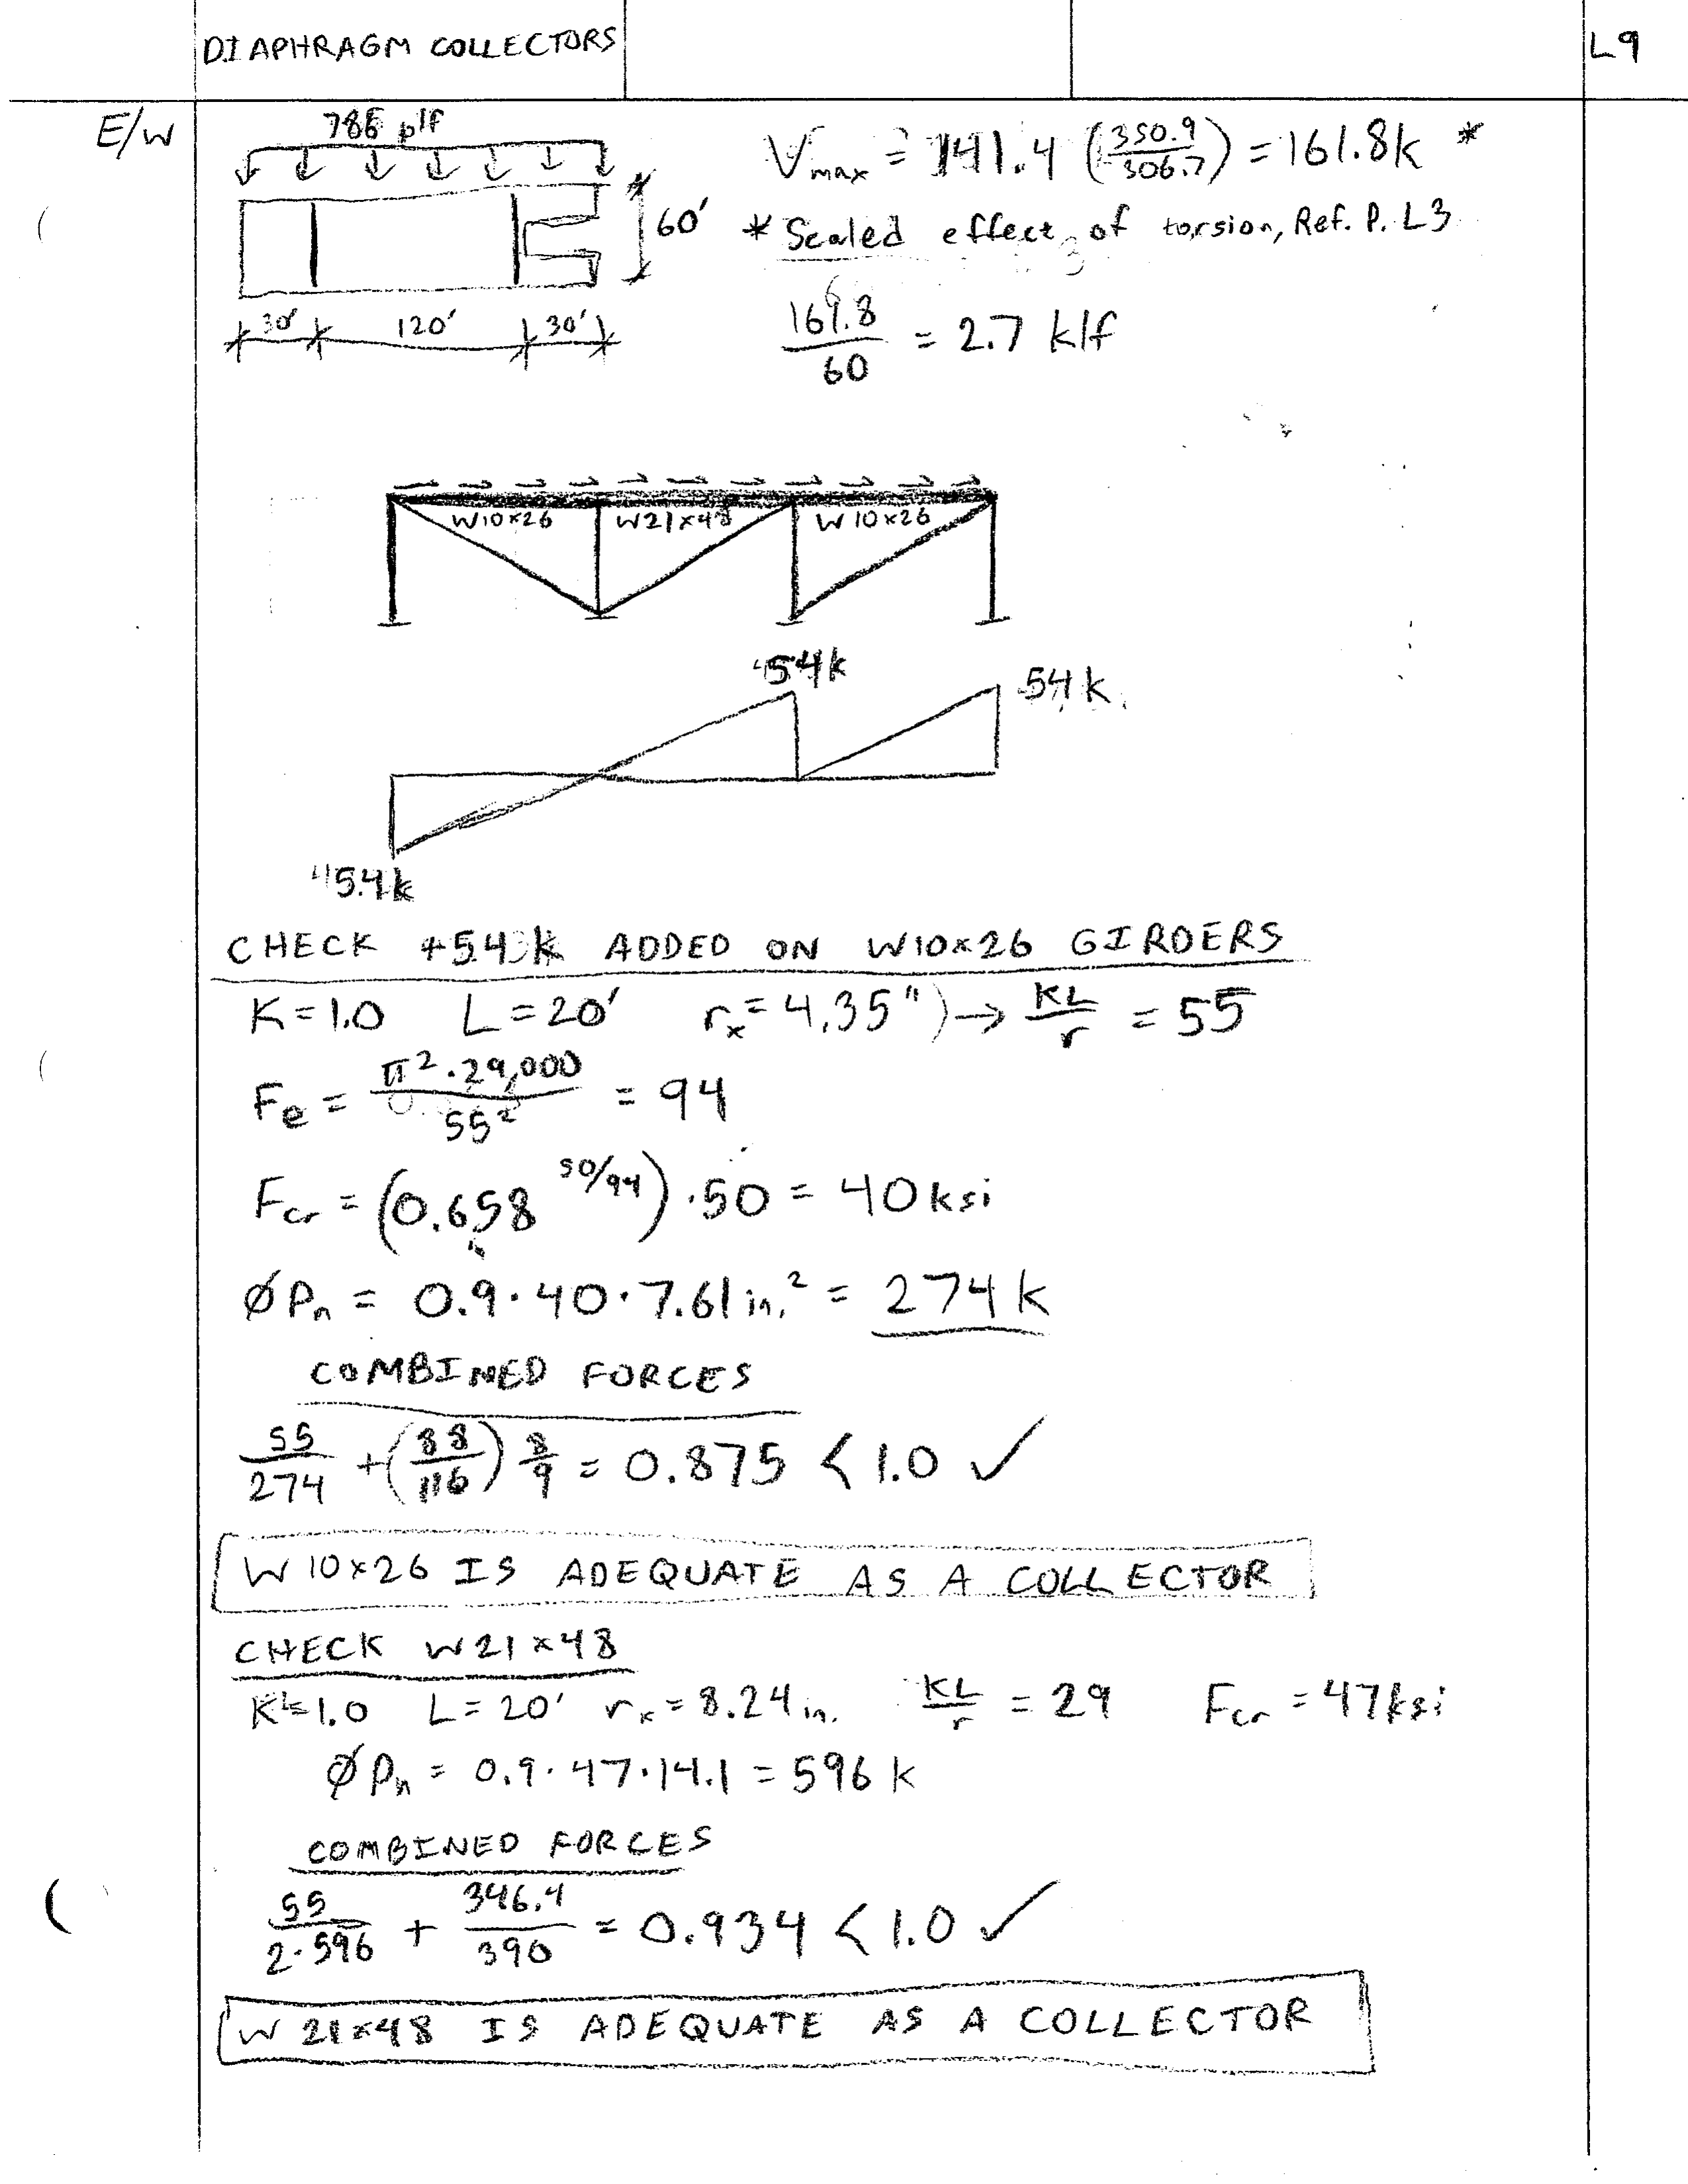 DIAPHRAGM COLLECTORS
L9
E/W
786 plf
60'
30' 120' 30'
Vmax = 141.4 (350.9/306.7) = 161.8k *
* Scaled effect of torsion, Ref. P. L3
161.8/60 = 2.7 klf
W10×26 W21×48 W10×26
54k
54k
54k
CHECK +54k ADDED ON W10×26 GIRDERS
K=1.0 L=20' rx=4.35") → KL/r = 55
Fe = π²·29,000/55² = 94
Fcr = (0.658^50/94)·50 = 40ksi
ØPn = 0.9·40·7.61in.² = 274k
COMBINED FORCES
55/274 + (88/116) 8/9 = 0.875 < 1.0 ✓
W10×26 IS ADEQUATE AS A COLLECTOR
CHECK W21×48
K=1.0 L=20' rx=8.24in. KL/r = 29 Fcr = 47ksi
ØPn = 0.9·47·14.1 = 596k
COMBINED FORCES
55/2·596 + 346.4/390 = 0.934 < 1.0 ✓
W21×48 IS ADEQUATE AS A COLLECTOR